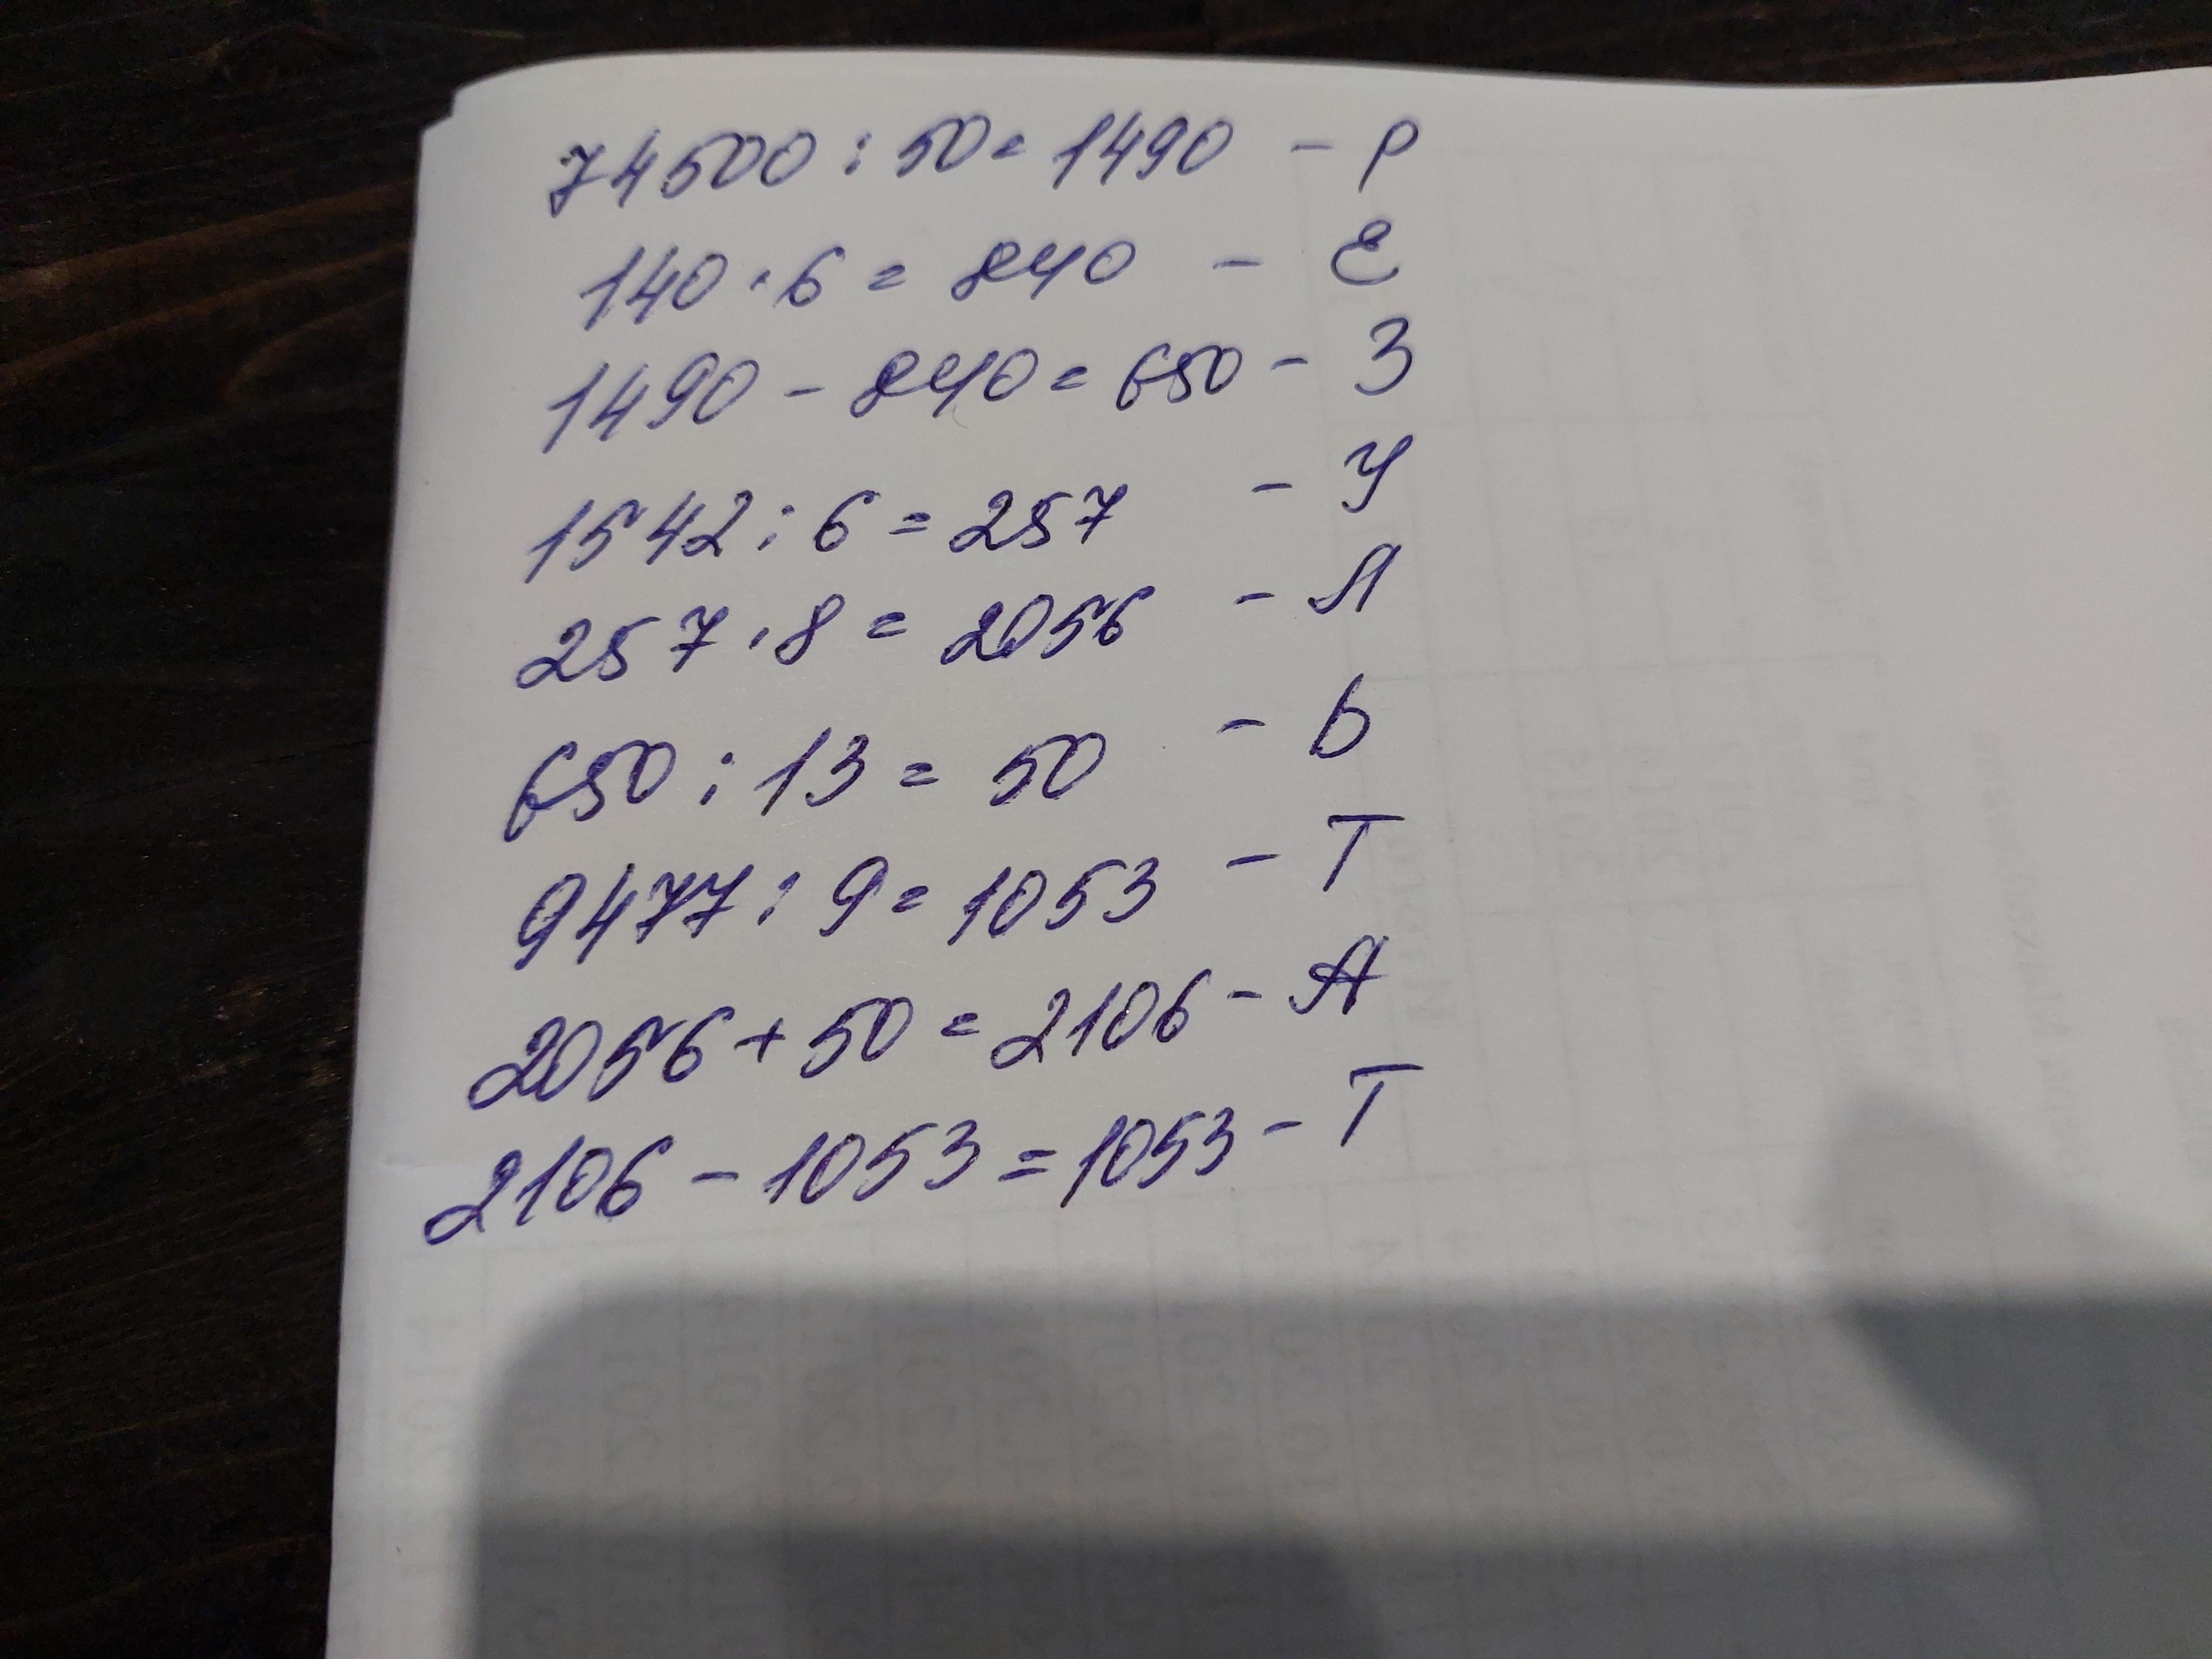 74500 : 50 = 1490 - Р
140 · 6 = 840 - Е
1490 - 840 = 650 - З
1542 : 6 = 257 - У
257 · 8 = 2056 - Л
650 : 13 = 50 - Ь
9477 : 9 = 1053 - Т
2056 + 50 = 2106 - А
2106 - 1053 = 1053 - Т